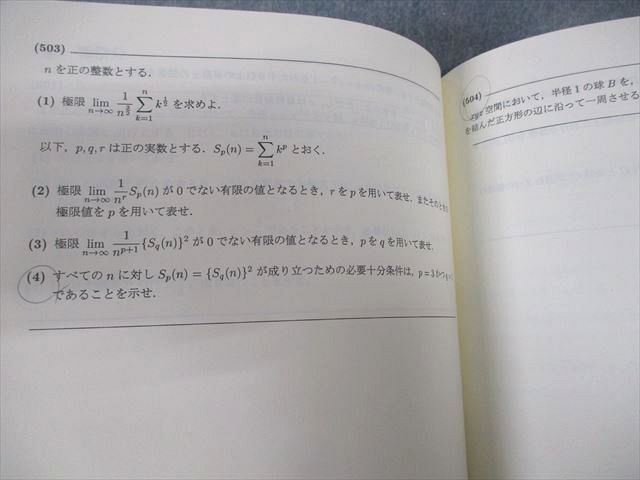 (503)
n を正の整数とする.
(1) 極限 lim_{n→∞} 1/n^{3/2} Σ_{k=1}^{n} k^{1/2} を求めよ.
以下, p, q, r は正の実数とする. S_p(n) = Σ_{k=1}^{n} k^p とおく.
(2) 極限 lim_{n→∞} 1/n^r S_p(n) が 0 でない有限の値となるとき, r を p を用いて表せ. またそのときの
極限値を p を用いて表せ.
(3) 極限 lim_{n→∞} 1/n^{p+1} {S_q(n)}^2 が 0 でない有限の値となるとき, p を q を用いて表せ.
(4) すべての n に対し S_p(n) = {S_q(n)}^2 が成り立つための必要十分条件は, p = 3 かつ q
であることを示せ.
(504)
xyz 空間において, 半径 1 の球 B を,
を結んだ正方形の辺に沿って一周させる